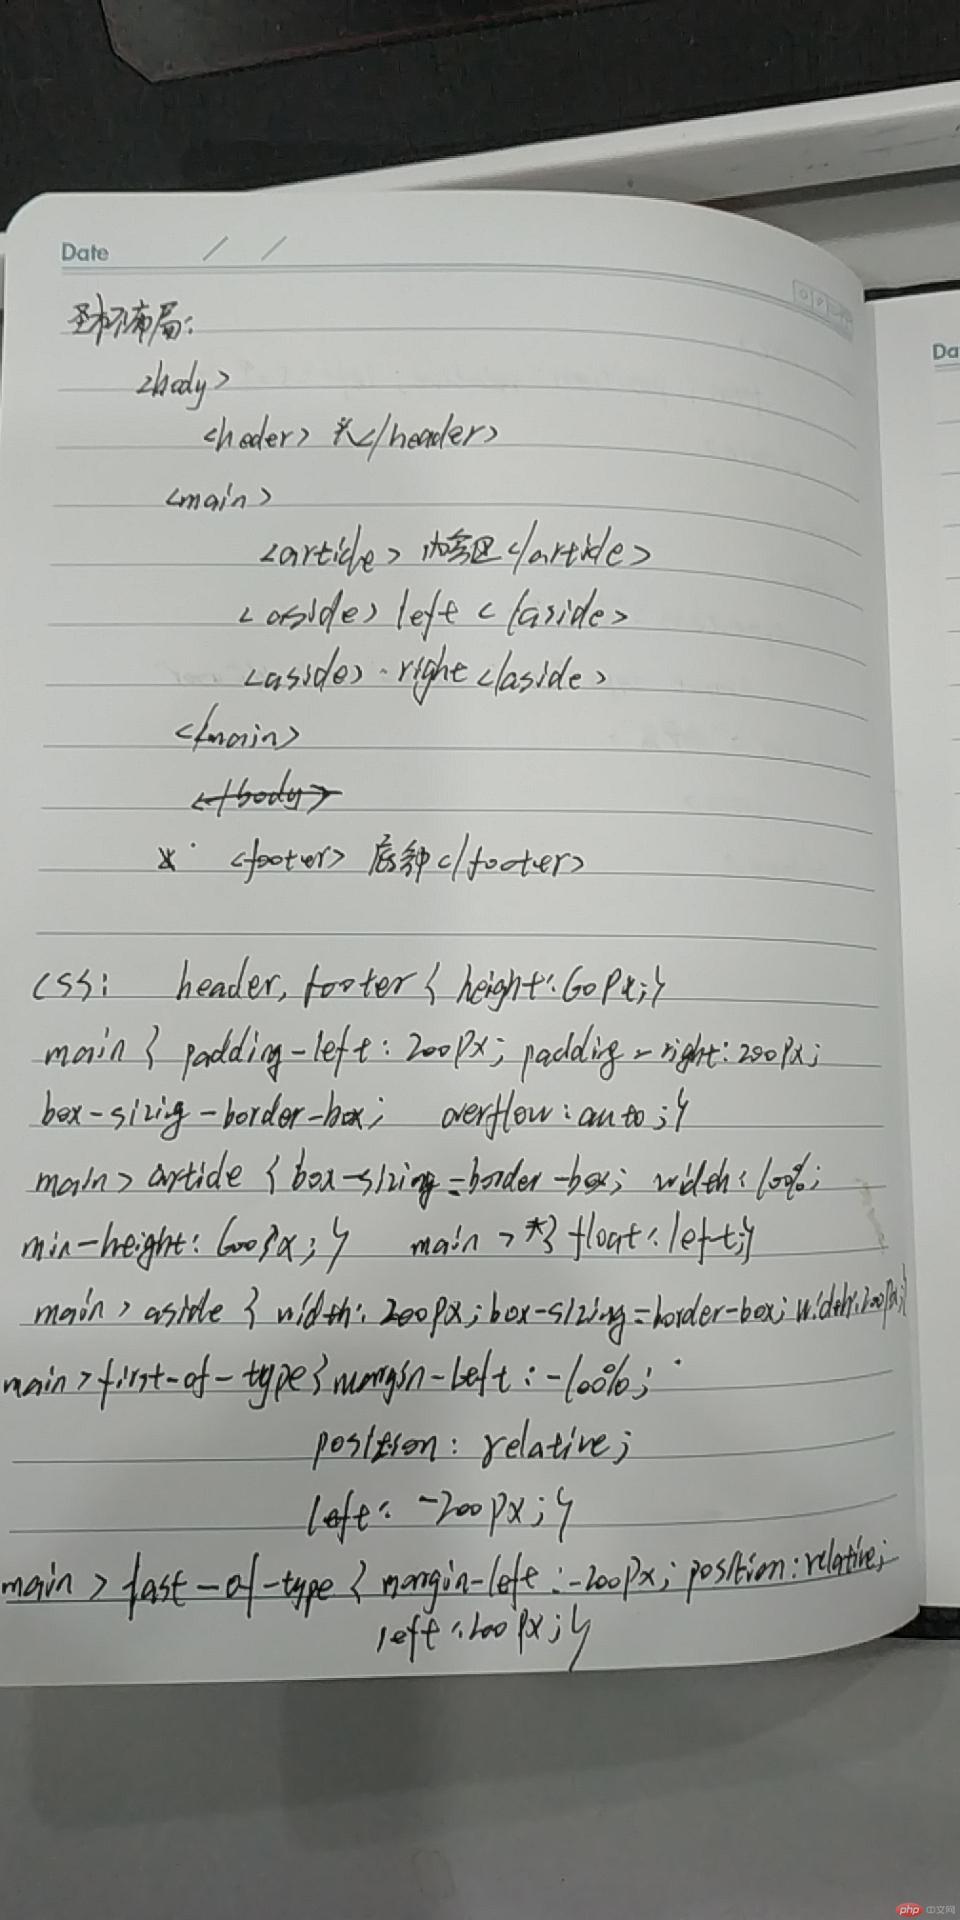 Date / /
圣杯布局:
<body>
<heder> 头</header>
<main>
<article> 内容区</article>
<aside> left </aside>
<aside> right </aside>
</main>
</body>
<footer> 底部</footer>
css: header, footer { height: 60px;}
main { padding-left: 200px; padding-right: 200px;
box-sizing-border-box; overflow: auto;}
main > article { box-sizing=border-box; width: 100%;
min-height: 600px;} main > *{ float: left;}
main > aside { width: 200px; box-sizing=border-box; width:200px;}
main > first-of-type{ margin-left: -100%;
position: relative;
left: -200px;}
main > last-of-type { margin-left: -200px; position: relative;
left: 200px;}
Da
php 中文网